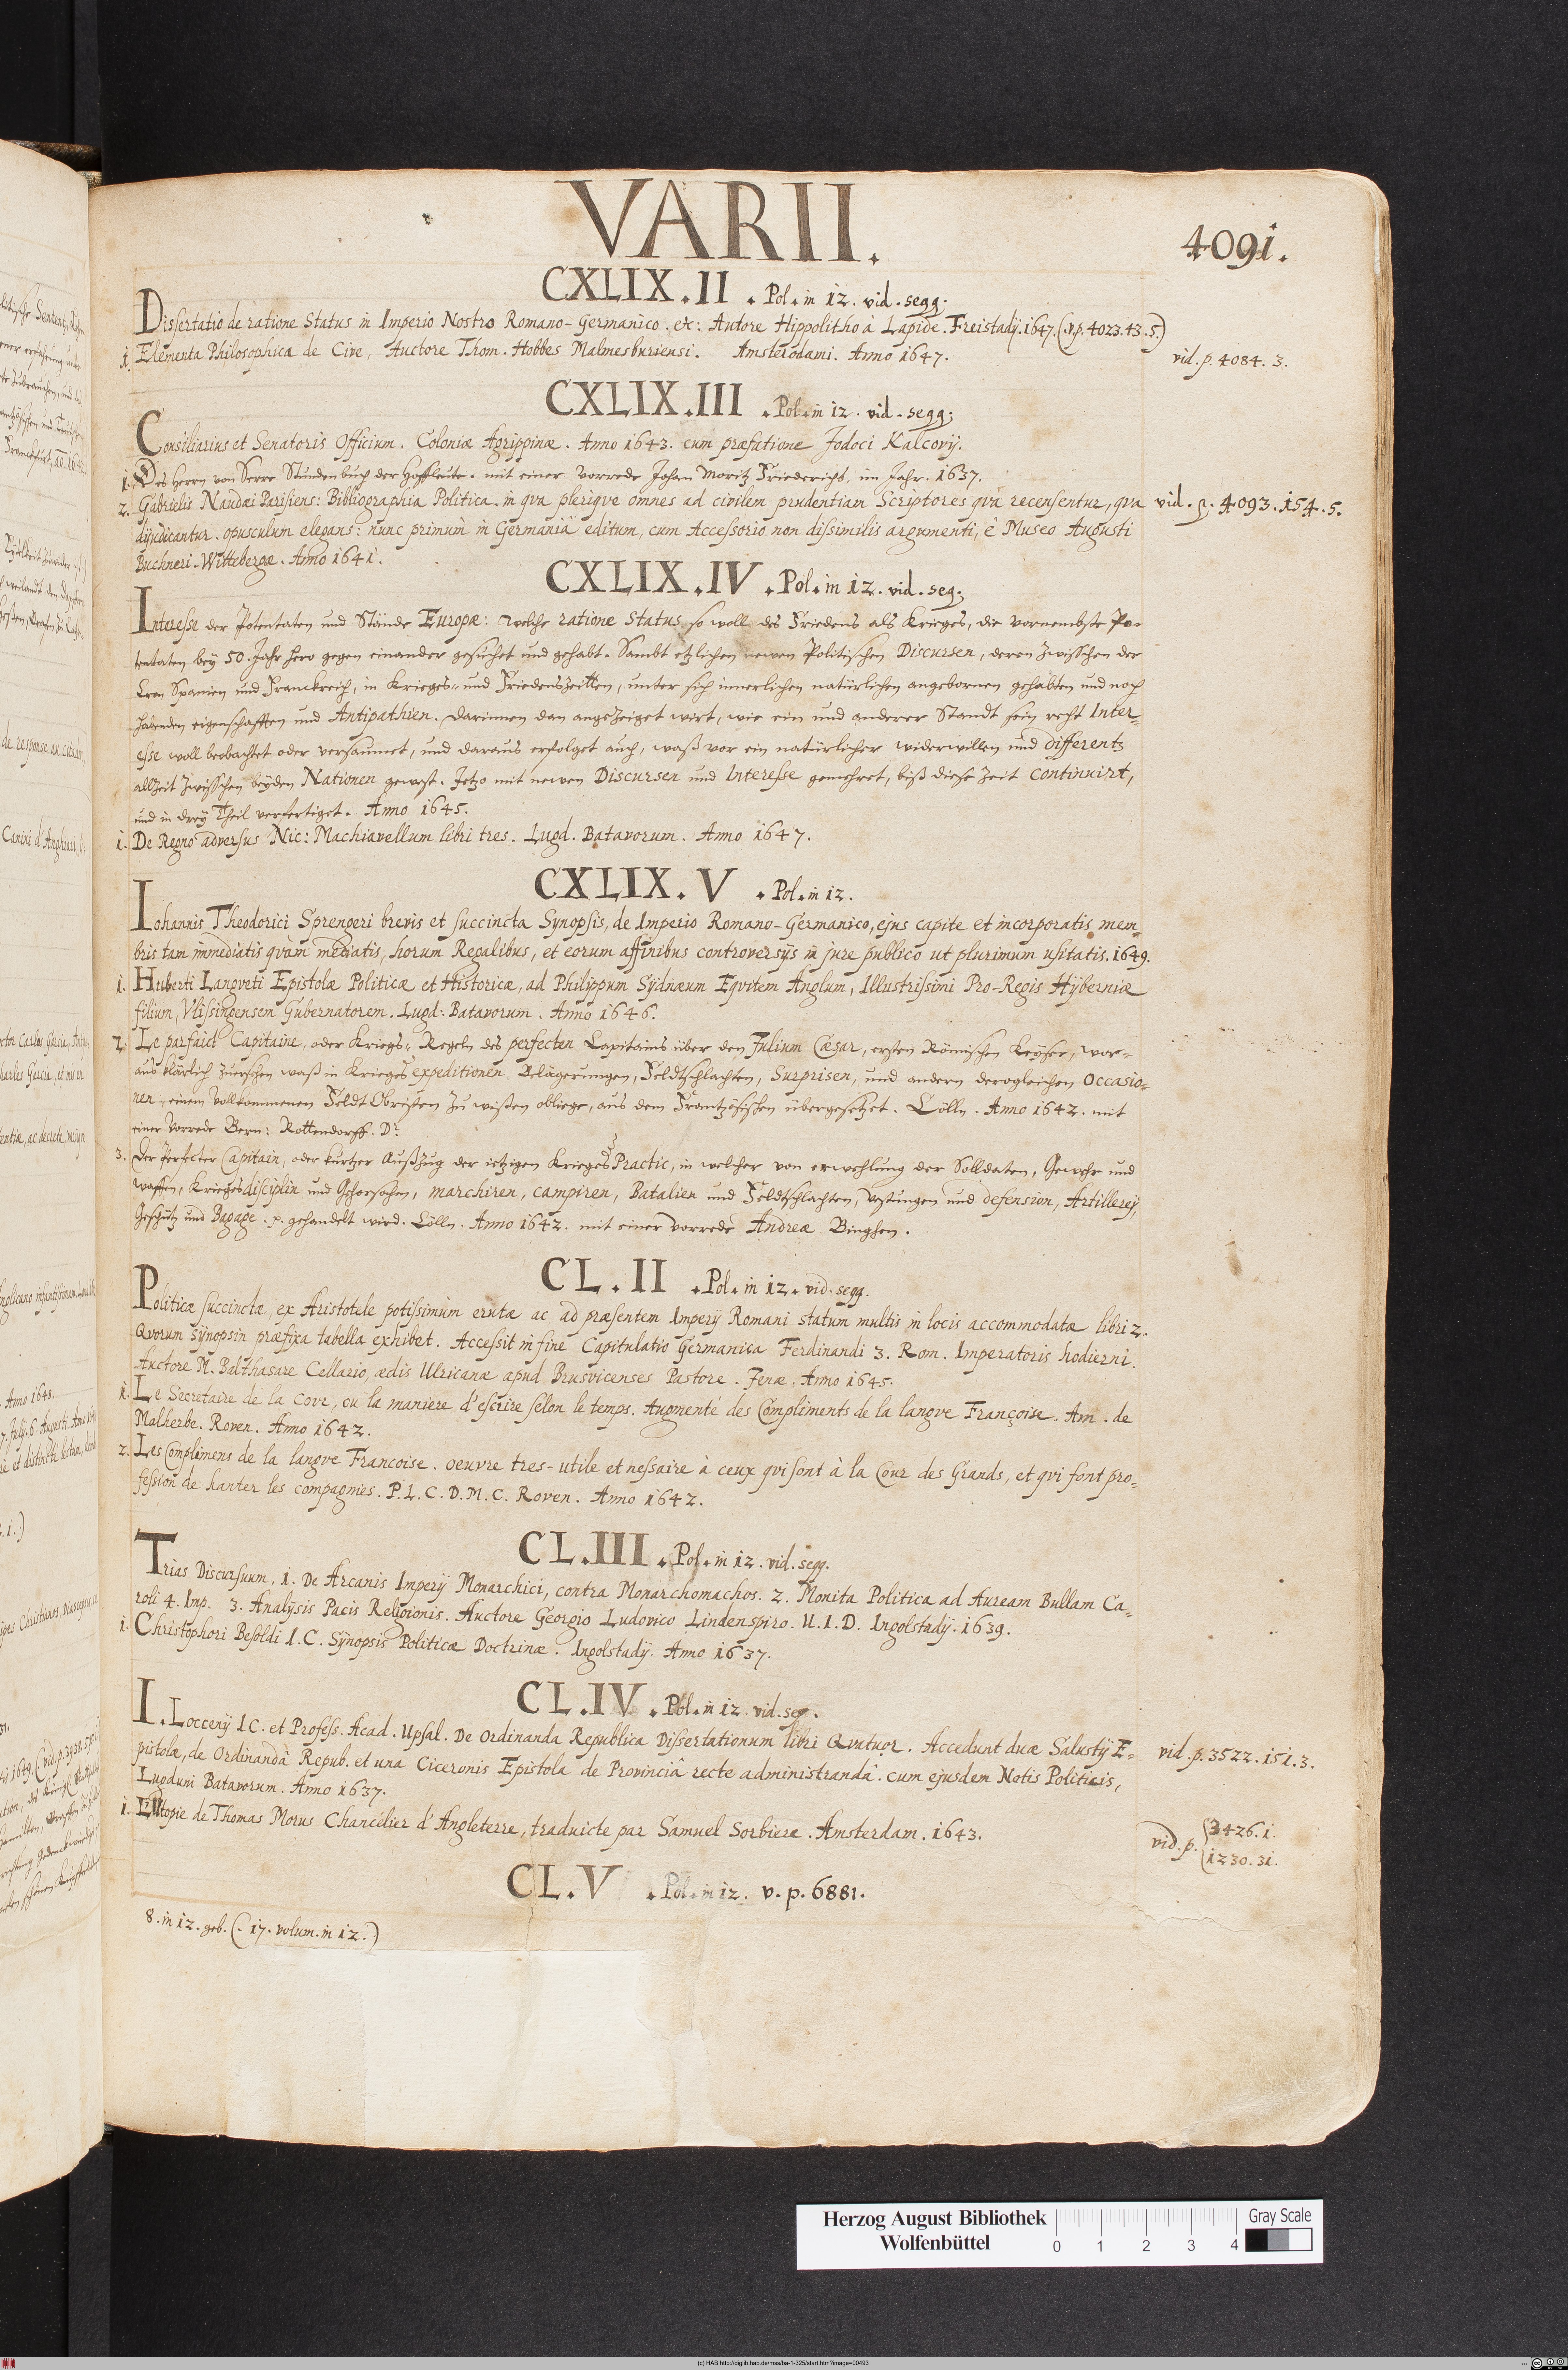 VARII.
4091.
CXLIX.II . Pol. in 12. vid. segg.
Dissertatio de ratione Status in Imperio Nostro Romano-Germanico. etc: Autore Hippolitho à Lapide. Freistadÿ. 1647. (v.p. 4023.43.5.)
1. Elementa Philosophica de Cive, Auctore Thom. Hobbes Malmesburiensi. Amsterodami. Anno 1647.
vid. p. 4084. 3.
CXLIX.III . Pol. in 12. vid. segg.
Consiliarius et Senatoris Officium. Coloniæ Agrippinæ. Anno 1643. cum præfatione Jodoci Kalcovÿ.
1. Des Herrn von Serre Stundenbuch der Hoffleute. mit einer vorrede Johan Moritz Friederichs, im Jahr. 1637.
2. Gabrielis Naudæi Parisiens: Bibliographia Politica. in qva plerique omnes ad civilem prudentiam Scriptores qvà recensentur, qva
vid. p. 4093. 154. 5.
dijudicantur. opusculum elegans: nunc primum in Germania editum, cum Accessorio non dissimilis argumenti, è Museo Augusti
Buchneri. Wittebergæ. Anno 1641.
CXLIX.IV . Pol. in 12. vid. seg.
Interesse der Potentaten und Stände Europæ: welche ratione Status so woll des Friedens als Krieges, die vornembste Po-
tentaten bey 50. Jahr hero gegen einander gesuchet und gehabt. Sambt etzlichen newen Politischen Discursen, deren zwisschen der
Cron Spanien und Franckreich, in Krieges- und Friedenszeitten, unter sich innerlichen natürlichen angebornen gehabten und noch
habenden eigenschafften und Antipathien. Darinnen dan angezeiget wirt, wie ein und anderer Standt sein recht Inter-
esse woll beobachtet oder versaumet, und daraus erfolget auch, waß vor ein natürlicher widerwillen und differentz
allzeit zwisschen beyden Nationen gewest. Jetzo mit newen Discursen und Interesse gemehret, biß diese zeit continuirt,
und in drey Theil verfertiget. Anno 1645.
1. De Regno adversus Nic: Machiavellum libri tres. Lugd. Batavorum. Anno 1647.
CXLIX. V . Pol. in 12.
Iohannis Theodorici Sprengeri brevis et succincta Synopsis, de Imperio Romano-Germanico, ejus capite et incorporatis mem-
bris tam immediatis qvàm mediatis, horum Regalibus, et eorum affinibus controversÿs in jure publico ut plurimum usitatis. 1649.
1. Huberti Langveti Epistolæ Politicæ et Historicæ, ad Philippum Sÿdnæum Eqvitem Anglum, Illustrissimi Pro-Regis Hÿberniæ
filium, Vlissingensem Gubernatorem. Lugd. Batavorum. Anno 1646.
2. Le parfaict Capitaine, oder Kriegs-Regeln des perfecten Capitains über den Julium Cæsar, ersten Römischen Keÿser, wor-
aus klärlich zuersehen waß in Krieges expeditionen Belägerungen, Feldtschlachten, Surprisen, und andern dergleichen Occasio-
nen, einem vollkommenen Feldt Obristen zu wißen obliege, aus dem Frantzösischen übergesetzet. Cölln. Anno 1642. mit
einer vorrede Bern: Rottendorff. Dr.
3. Der Perfecter Capitain, oder kurtzer Außzug der ietzigen Krieges Practic, in welcher von erwehlung der Solldaten, Gewehr und
waffen, Kriegesdisciplin und Gehorsahm, marchiren, campiren, Batalien und Feldtschlachten, Vestungen und defension, Artillerey,
Geschütz und Bagage. p. gehandelt wird. Cölln. Anno 1642. mit einer vorrede Andreæ Binghen.
CL.II . Pol. in 12. vid. segg.
Politicæ succinctæ, ex Aristotele potissimùm erutæ ac ad præsentem Imperÿ Romani statum multis in locis accommodatæ libri 2.
Qvorum synopsin præfixa tabella exhibet. Accessit in fine Capitulatio Germanica Ferdinandi 3. Rom. Imperatoris hodierni.
Auctore M. Balthasare Cellario, ædis Ulricanæ apud Brusvicenses Pastore. Jenæ. Anno 1645.
1. Le Secretaire de la Cour, ou la maniere d'escrire selon le temps. Augmenté des Compliments de la langve Françoise. Am. de
Malherbe. Roven. Anno 1642.
2. Les Complimens de la langve Francoise. oeuvre tres-utile et nessaire à ceux qvi sont à la Cour des Grands, et qvi font pro-
fession de hanter les compagnies. P. L. C. D. M. C. Roven. Anno 1642.
CL.III . Pol. in 12. vid. segg.
Trias Discursuum, 1. De Arcanis Imperÿ Monarchici, contra Monarchomachos. 2. Monita Politica ad Auream Bullam Ca-
roli 4. Imp. 3. Analÿsis Pacis Religionis. Auctore Georgio Ludovico Lindenspiro. U. I. D. Ingolstadÿ. 1639.
1. Christophori Besoldi I. C. Sÿnopsis Politicæ Doctrinæ. Ingolstadÿ. Anno 1637.
CL.IV . Pol. in 12. vid. seg.
I. Loccenÿ I C. et Profess. Acad. Upsal. De Ordinanda Republica Dissertationum libri Qvatuor. Accedunt duæ Salustÿ E-
vid. p. 3522. 151. 3.
pistolæ, de Ordinandâ Repub. et una Ciceronis Epistola de Provinciâ recte administrandâ. cum ejusdem Notis Politicis,
Lugduni Batavorum. Anno 1637.
1. L'Utopie de Thomas Morus Chancelier d'Angleterre, traduicte par Samuel Sorbiere. Amsterdam. 1643.
vid. p. 3426. 1.
1230. 31.
CL.V . Pol. in 12. v. p. 6881.
8. in 12. geb. (. 17. volum. in 12.)
Herzog August Bibliothek
Wolfenbüttel
0 1 2 3 4
Gray Scale
(c) HAB http://diglib.hab.de/mss/ba-1-325/start.htm?image=00493